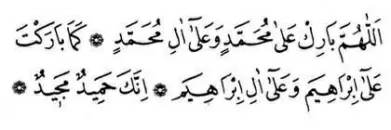 اَللّٰهُمَّ بَارِكْ عَلٰى مُحَمَّدٍ وَعَلٰٓى اٰلِ مُحَمَّدٍ ❁ كَمَا بَارَكْتَ
عَلٰٓى اِبْرَاهِيمَ وَعَلٰٓى اٰلِ اِبْرَاهِيمَ ❁ اِنَّكَ حَمِيدٌ مَجِيدٌ ❁